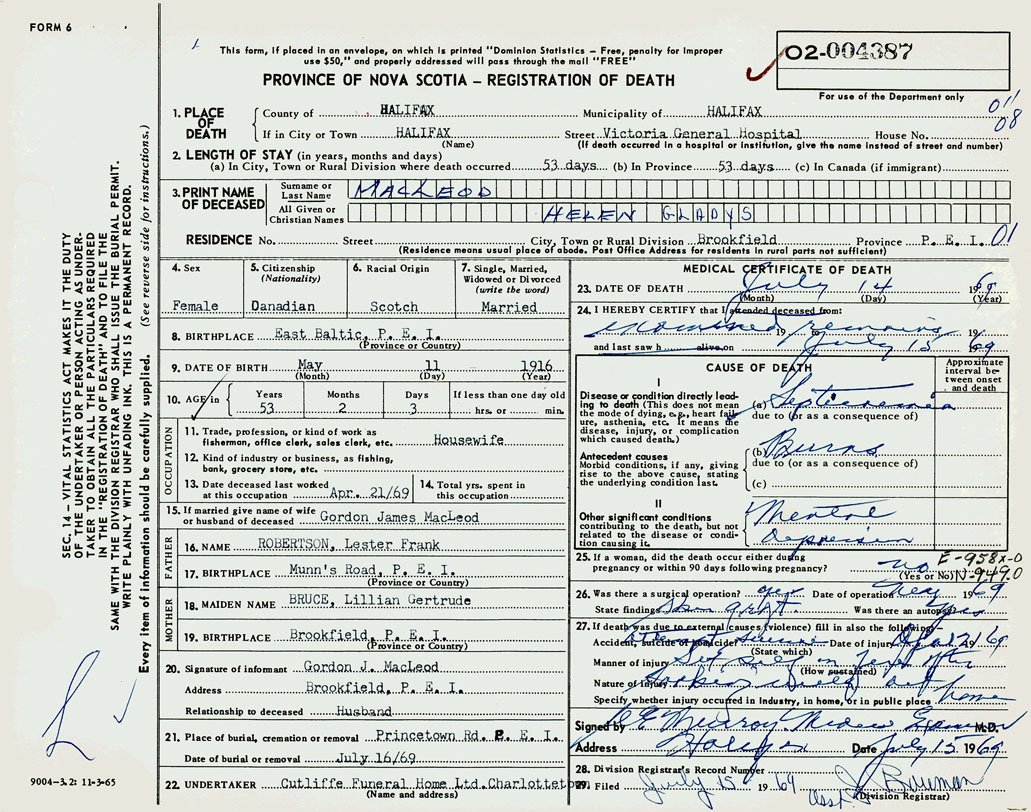 FORM 6
This form, if placed in an envelope, on which is printed "Dominion Statistics – Free, penalty for improper
use $50," and properly addressed will pass through the mail "FREE"
PROVINCE OF NOVA SCOTIA – REGISTRATION OF DEATH
02-004387
For use of the Department only
011
08
1. PLACE OF DEATH
County of HALIFAX Municipality of HALIFAX
If in City or Town HALIFAX Street Victoria General Hospital House No.
(Name) (If death occurred in a hospital or institution, give the name instead of street and number)
2. LENGTH OF STAY (in years, months and days)
(a) In City, Town or Rural Division where death occurred 53 days (b) In Province 53 days (c) In Canada (if immigrant)
3. PRINT NAME OF DECEASED
Surname or Last Name MACLEOD
All Given or Christian Names HELEN GLADYS
RESIDENCE No. Street City, Town or Rural Division Brookfield Province P. E. I. 01
(Residence means usual place of abode. Post Office Address for residents in rural parts not sufficient)
4. Sex
Female
5. Citizenship
(Nationality)
Danadian
6. Racial Origin
Scotch
7. Single, Married, Widowed or Divorced
(write the word)
Married
8. BIRTHPLACE East Baltic, P. E. I.
(Province or Country)
9. DATE OF BIRTH May 11 1916
(Month) (Day) (Year)
10. AGE in
Years Months Days If less than one day old
53 2 3 hrs. or min.
OCCUPATION
11. Trade, profession, or kind of work as
fisherman, office clerk, sales clerk, etc. Housewife
12. Kind of industry or business, as fishing,
bank, grocery store, etc.
13. Date deceased last worked
at this occupation Apr. 21/69
14. Total yrs. spent in
this occupation
15. If married give name of wife
or husband of deceased Gordon James MacLeod
FATHER
16. NAME ROBERTSON, Lester Frank
17. BIRTHPLACE Munn's Road, P. E. I.
(Province or Country)
MOTHER
18. MAIDEN NAME BRUCE, Lillian Gertrude
19. BIRTHPLACE Brookfield, P. E. I.
(Province or Country)
20. Signature of informant Gordon J. MacLeod
Address Brookfield, P. E. I.
Relationship to deceased Husband
21. Place of burial, cremation or removal Princetown Rd. P. E. I.
Date of burial or removal July 16/69
22. UNDERTAKER Cutliffe Funeral Home Ltd. Charlottetown
(Name and address)
MEDICAL CERTIFICATE OF DEATH
23. DATE OF DEATH July 14 1969
(Month) (Day) (Year)
24. I HEREBY CERTIFY that I attended deceased from:
examined remains 19 to 19
and last saw h alive on July 15 1969
CAUSE OF DEATH
Approximate interval between onset and death
I
Disease or condition directly leading to death (This does not mean the mode of dying, e.g., heart failure, asthenia, etc. It means the disease, injury, or complication which caused death.)
(a) Septicaemia
due to (or as a consequence of)
Antecedent causes
Morbid conditions, if any, giving rise to the above cause, stating the underlying condition last.
(b) Burns
due to (or as a consequence of)
(c)
II
Other significant conditions contributing to the death, but not related to the disease or condition causing it.
Mental
depression
25. If a woman, did the death occur either during
pregnancy or within 90 days following pregnancy? no
(Yes or No)
E-958x-0
N-949.0
26. Was there a surgical operation? yes Date of operation May 1969
State findings Skin graft. Was there an autopsy? yes
27. If death was due to external causes (violence) fill in also the following:–
Accident, suicide or homicide? Date of injury 19 69
(State which)
Manner of injury Set self on fire after
(How sustained)
Nature of injury
Specify whether injury occurred in industry, in home, or in public place home
Signed by M.D.
Address Halifax Date July 15 1969
28. Division Registrar's Record Number
29. Filed July 15 1969 J. Bowman
Asst (Division Registrar)
SEC. 14 – VITAL STATISTICS ACT MAKES IT THE DUTY
OF THE UNDERTAKER OR PERSON ACTING AS UNDER-
TAKER TO OBTAIN ALL THE PARTICULARS REQUIRED
IN THE "REGISTRATION OF DEATH" AND TO FILE THE
SAME WITH THE DIVISION REGISTRAR WHO SHALL ISSUE THE BURIAL PERMIT.
WRITE PLAINLY WITH UNFADING INK. THIS IS A PERMANENT RECORD.
Every item of information should be carefully supplied. (See reverse side for instructions.)
9004–3.2: 11-3-65